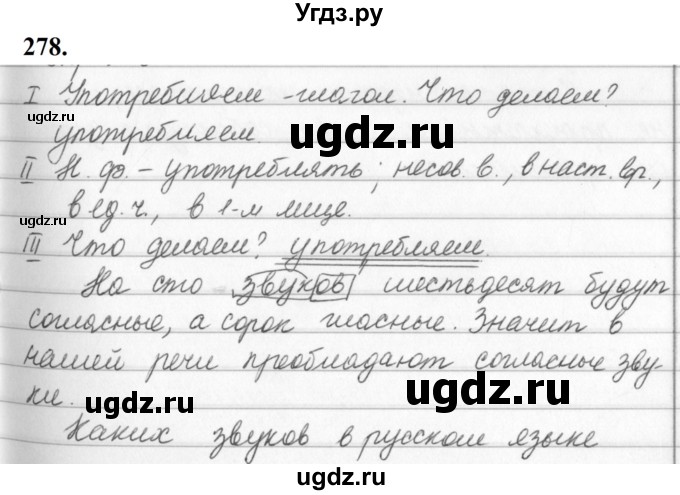 Угдз.ру
278.
I Употребляем - глагол. Что делаем?
употребляем.
II Н. ф. - употреблять; несов. в., в наст. вр.,
в ед. ч., в 1-м лице.
III Что делаем? употребляем.
На сто звуков шестьдесят будут
согласные, а сорок гласные. Значит в
нашей речи преобладают согласные зву-
ки.
Каких звуков в русском языке
ugdz.ru
ugdz.ru
ugdz.ru
ugdz.ru
ugdz.ru
ugdz.ru
ugdz.ru
ugdz.ru